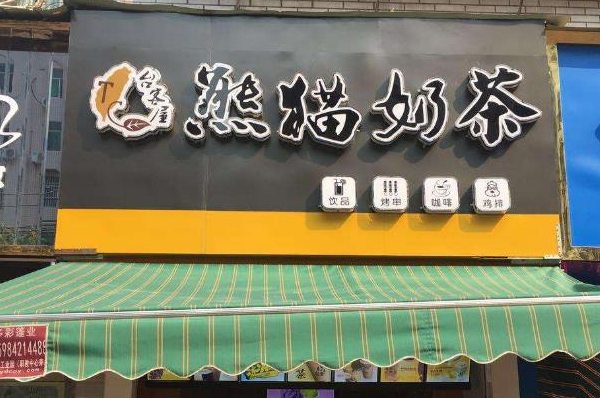 台客屋
熊猫奶茶
饮品 烤串 咖啡 鸡排
彩蓬业
5984214489